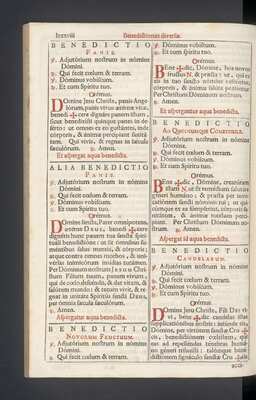 lxxxviii
Benedictiones diversæ.
BENEDICTIO
PANIS.
℣. Adjutórium nostrum in nómine
Dómini.
℟. Qui fecit cœlum & terram.
℣. Dóminus vobíscum.
℟. Et cum Spíritu tuo.
Orémus.
Dómine Jesu Christe, panis Ange
lórum, panis vivus ætérnæ vitæ,
bene✠dícere dignáre panem istum,
sicut benedixísti quinque panes in de-
sérto: ut omnes ex eo gustántes, inde
córporis, & ánimæ percípiant sanitá-
tem. Qui vivis, & regnas in sæcula
sæculórum. ℟. Amen.
Et aspergat aqua benedicta.
ALIA BENEDICTIO
PANIS.
℣. Adjutórium nostrum in nómine
Dómini.
℟. Qui fecit cœlum & terram.
℣. Dóminus vobíscum.
℟. Et cum Spíritu tuo.
Orémus.
Dómine sancte, Pater omnípotens,
ætérne Deus, bene✠dícere
dignéris hunc panem tua sancta spiri-
tuáli benedictióne: ut sit ómnibus su-
méntibus salus mentis, & córporis;
atque contra omnes morbos, & uni-
vérsas inimicórum insídias tutámen.
Per Dóminum nostrum Jesum Chri-
stum Fílium tuum, panem vivum,
qui de cœlo descéndit, & dat vitam, &
salútem mundo: & tecum vivit, & re-
gnat in unitáte Spíritus sancti Deus,
per ómnia sæcula sæculórum.
℟. Amen.
Aspergatur aqua benedicta.
BENEDICTIO
NOVORUM FRUCTUUM.
℣. Adjutórium nostrum in nómine
Dómini.
℟. Qui fecit cœlum & terram.
℣. Dóminus vobíscum.
℟. Et cum Spíritu tuo.
Orémus.
Bene✠dic, Dómine, hos novos
fructus
Per Christum Dóminum nostrum.
℟. Amen.
Et aspergantur aqua benedicta.
BENEDICTIO
AD QUODCUMQUE COMESTIBILE.
℣. Adjutórium nostrum in nómine
Dómini.
℟. Qui fecit cœlum & terram.
℣. Dóminus vobíscum.
℟. Et cum Spíritu tuo.
Orémus.
Bene✠dic, Dómine, creatúram
istam N. ut sit remédium salutáre
géneri humáno: & præsta per invo-
catiónem sancti nóminis tui; ut qui-
cúmque ex ea súmpserint, córporis sa-
nitátem, & ánimæ tutélam percí-
piant. Per Christum Dóminum no-
strum.
℟. Amen.
Aspergat id aqua benedicta.
BENEDICTIO
CANDELARUM.
℣. Adjutórium nostrum in nómine
Dómini.
℟. Qui fecit cœlum & terram.
℣. Dóminus vobíscum.
℟. Et cum Spíritu tuo.
Orémus.
Dómine Jesu Christe, Fili Dei vi-
vi, bene✠dic candélas istas
supplicatiónibus nostris: infúnde eis,
Dómine, per virtútem sanctæ Cru✠cis,
benedictiónem cœléstem, qui
eas ad repelléndas ténebras humá-
no géneri tribuísti: talémque bene-
dictiónem signáculo sanctæ Cru✠cis